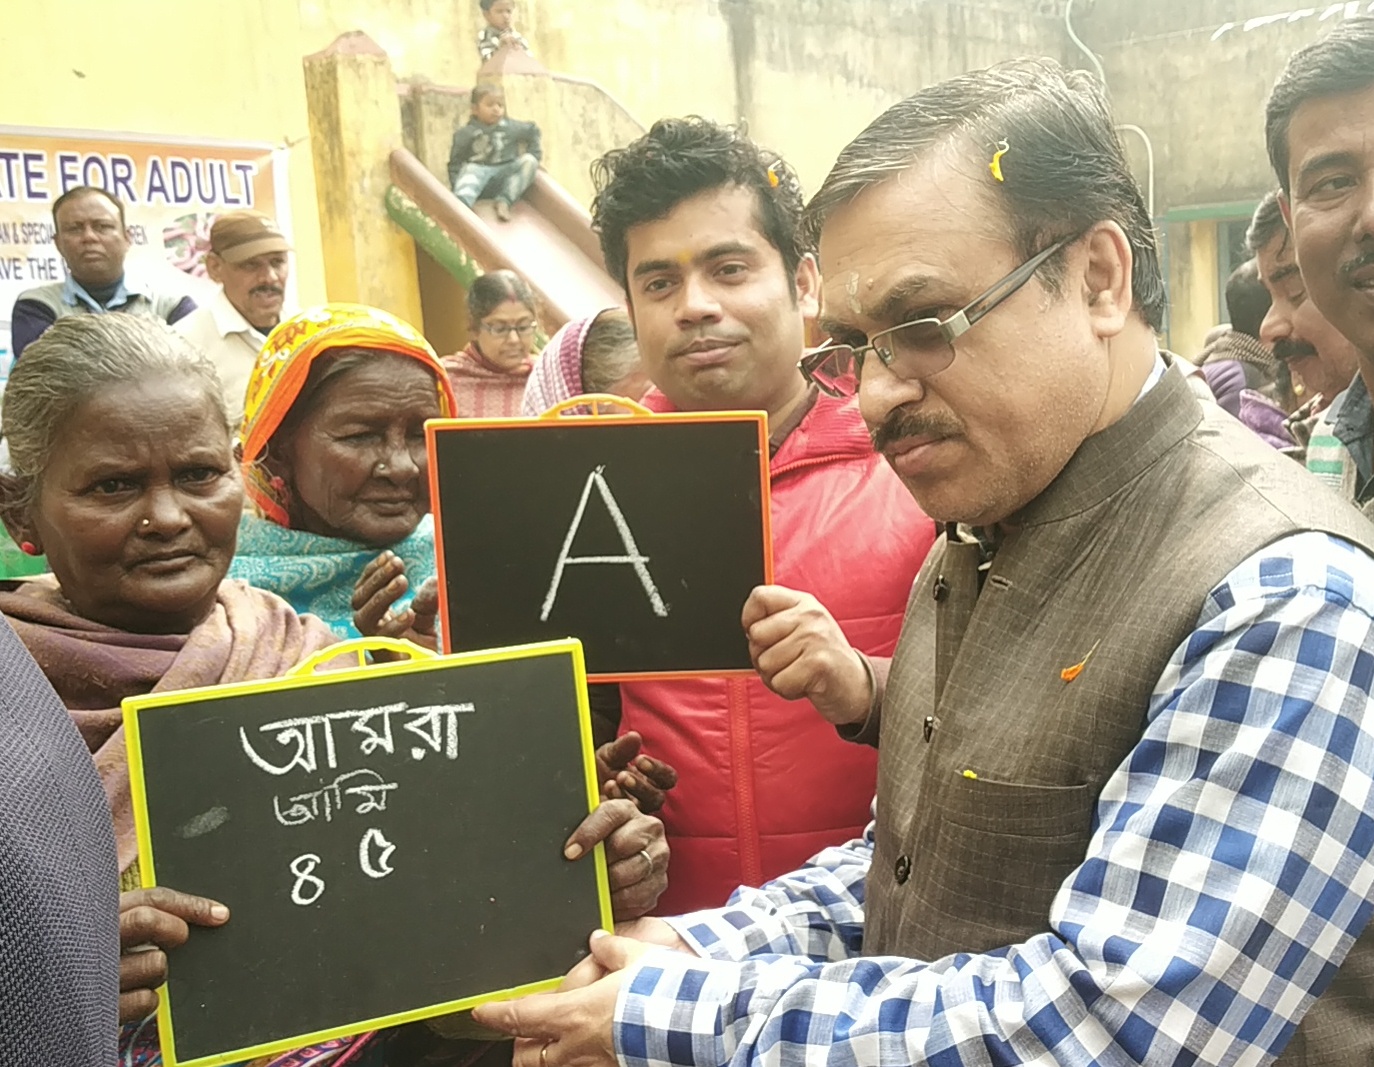 ATE FOR ADULT
AN & SPECIA
AVE THE
A
আমরা
আমি
৪ ৫